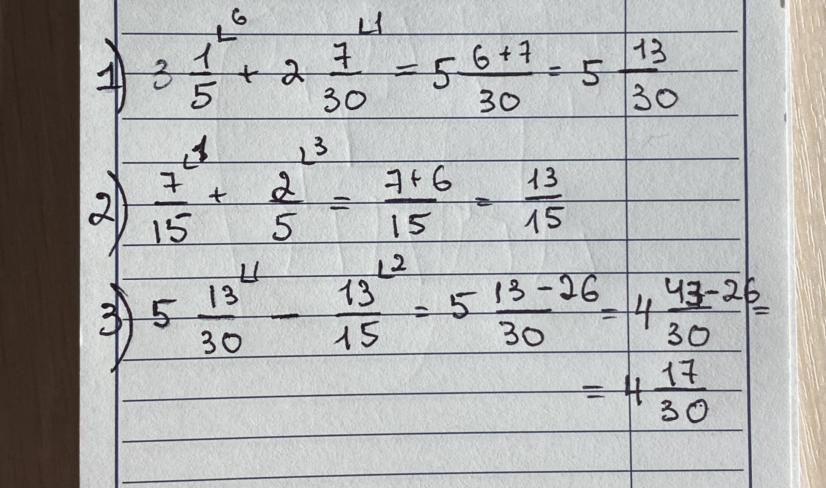 1) 3 1/5 ⌞6 + 2 7/30 ⌞1 = 5 (6+7)/30 = 5 13/30
2) 7/15 ⌞1 + 2/5 ⌞3 = (7+6)/15 = 13/15
3) 5 13/30 ⌞1 − 13/15 ⌞2 = 5 (13−26)/30 = 4 (43−26)/30 =
= 4 17/30